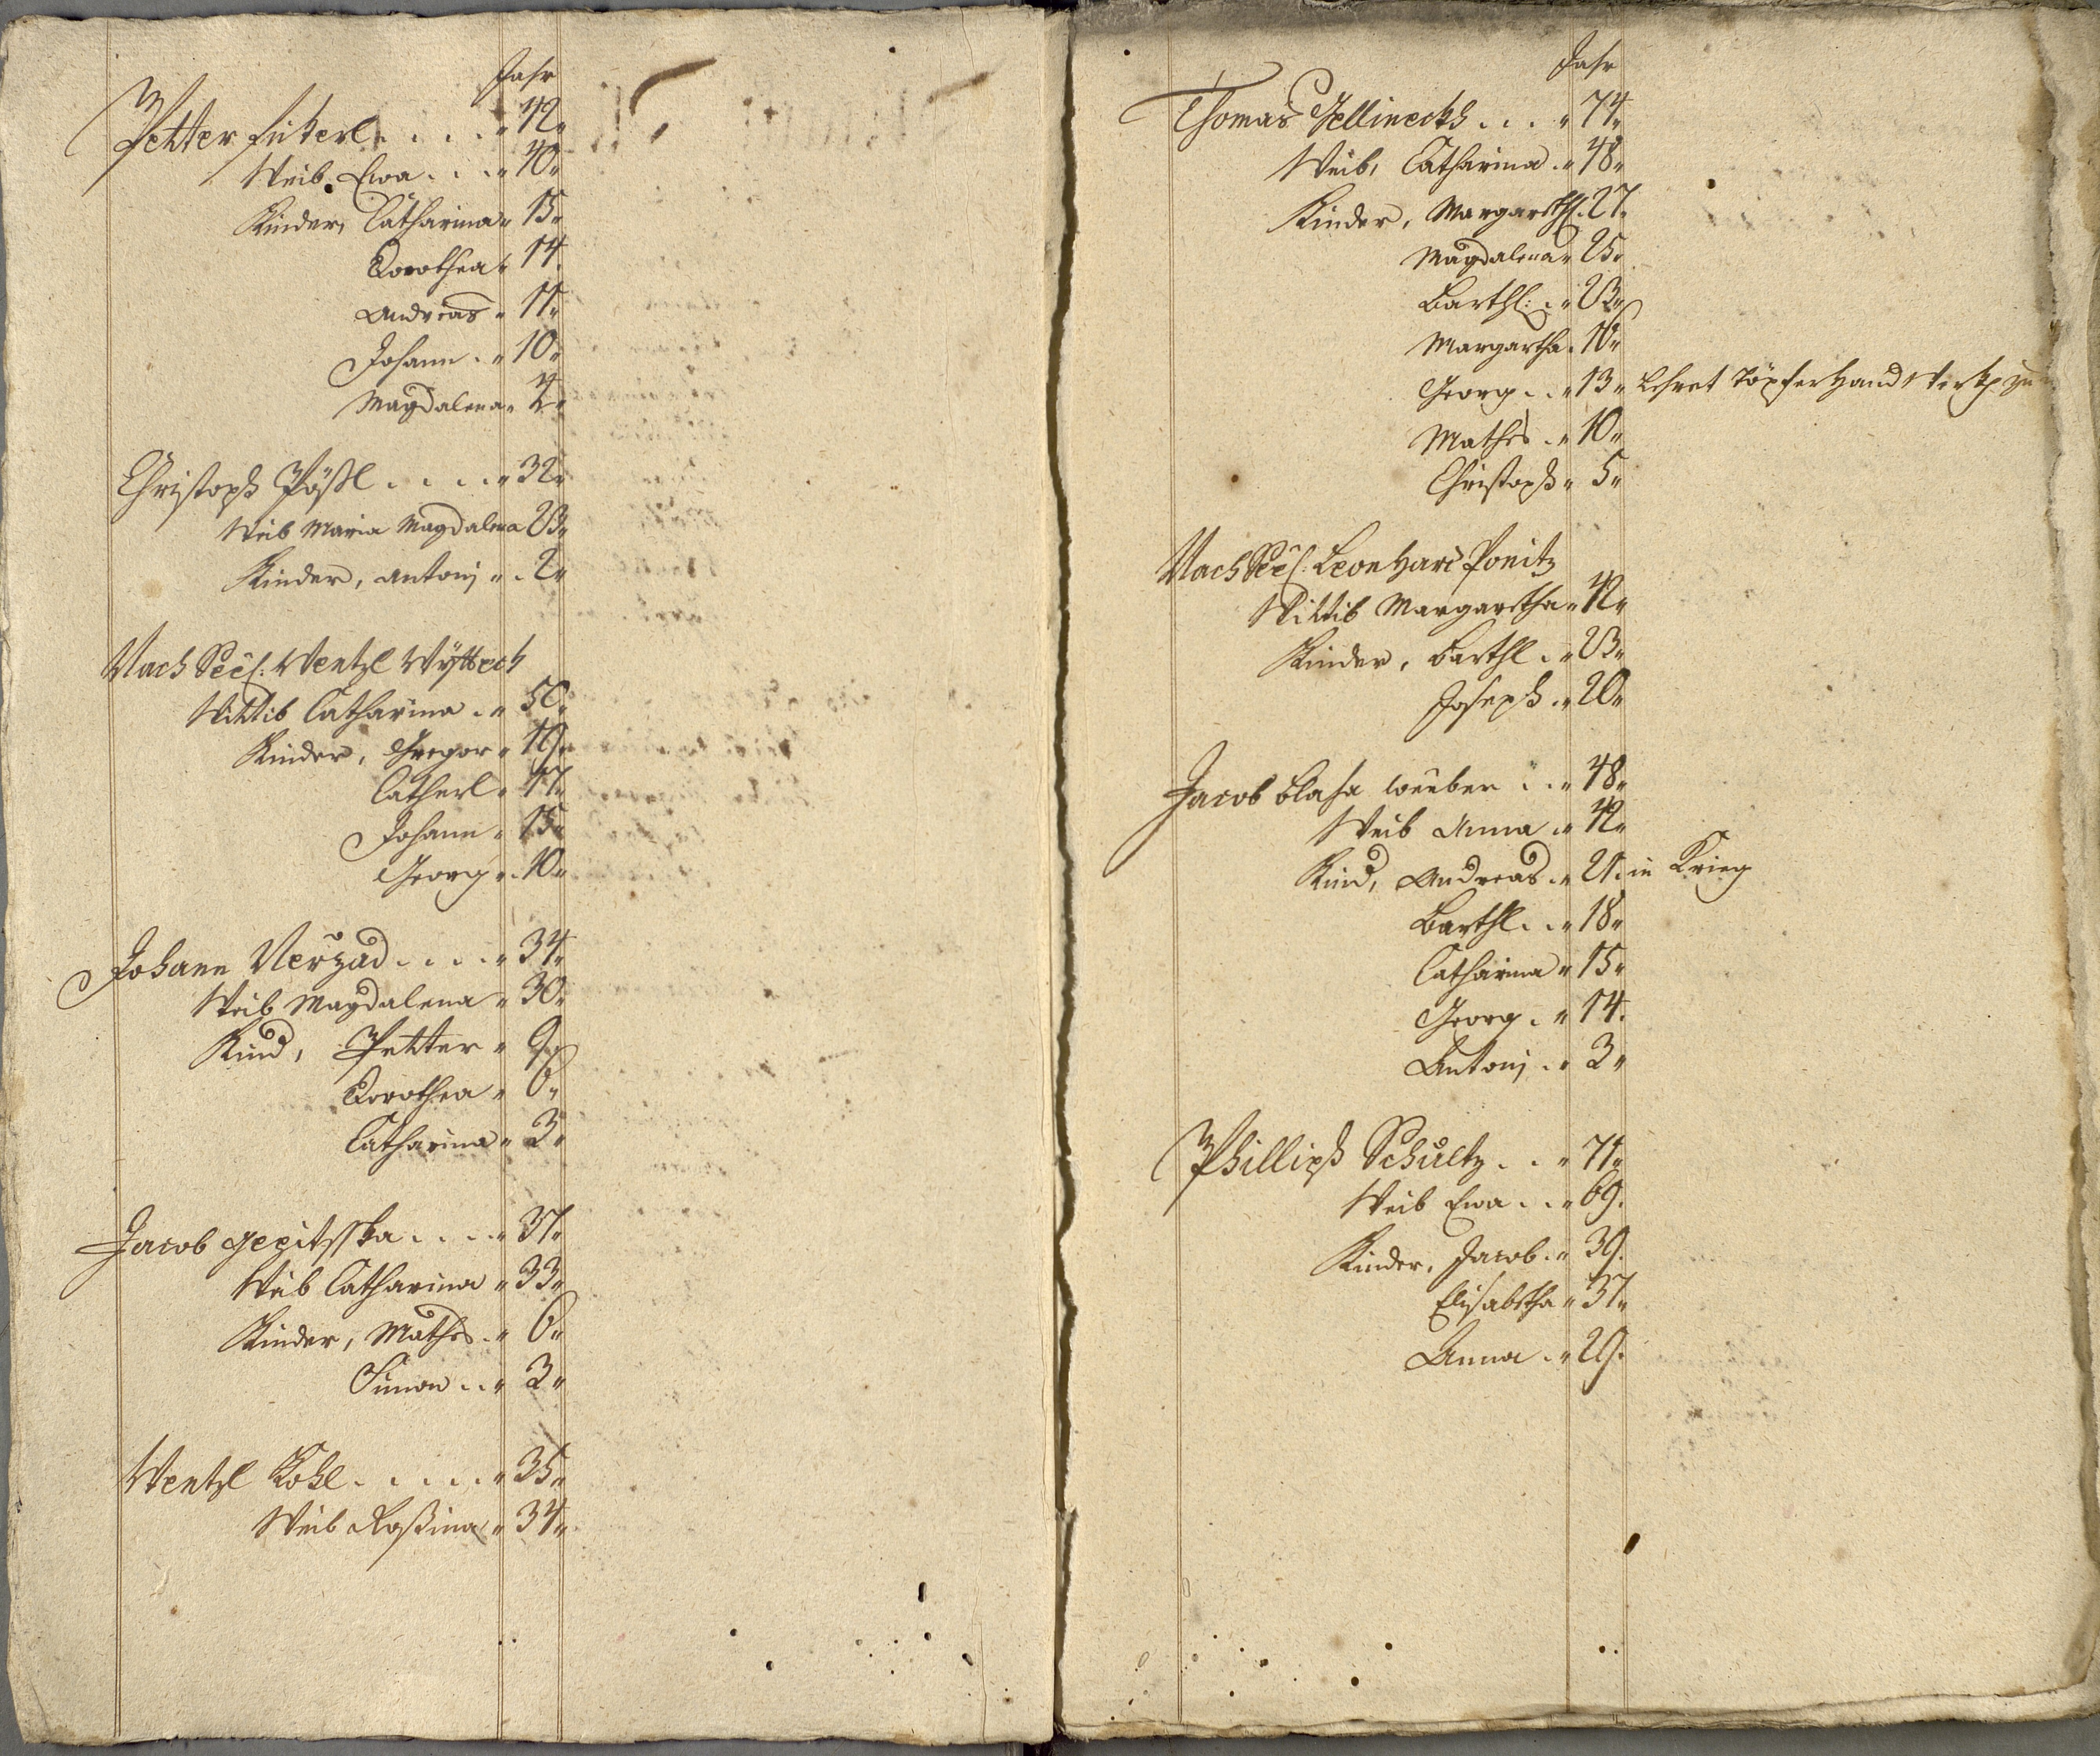 Jahr
Petter fickerl . . . . " 42"
Weib Ewa . . . " 40"
Kinder, Catharina " 15"
Dorothea " 14.
Andreas " 11"
Johann . " 10"
Magdalena " 4"
Christoph Pößl . . . . " 32"
Weib Maria Magdalena 23"
Kinder, Antonj " . 2"
Nach Seel: Wentzl
Wittib Catharina . " 50"
Kinder, Gregor " 19"
Catherl " 17"
Johann " 15"
Georg " . 10"
Johann Nerzad . . . . " 34"
Weib Magdalena " 30"
Kind, Petter " 9"
Dorothea " 6"
Catharina " 3"
Jacob . . . . " 37"
Weib Catharina " 33"
Kinder, Mathes . " 6"
Simon . . " 3"
Wentzl Kohl . . . . . " 35"
Weib Roßina " 34"
Jahr
Thomas Jellineckh . . . " 74"
Weib, Catharina . " 48"
Kinder, Margareth: 27"
Magdalena " 25"
Barthl: . " 23"
Margartha . 16"
Georg . . " 13" Lehret Töpfer Handwerkh
Mathes . " 10"
Christoph " 5"
Nach Seel: Leonhard Ponitz
Wittib Margaretha " 42"
Kinder, Barthl . " 23"
Joseph . " 20"
Jacob Blaha weuber . . " 48"
Weib Anna . " 42"
Kind, Andreas . " 21. in Krieg
Barthl . . " 18"
Catharina " 15"
Georg . " 14.
Antonj . " 3"
Phillipp Schultz . . " 71"
Weib Ewa . . " 69.
Kinder, Jacob . " 39.
Elisabetha " 37"
Anna . " 29.